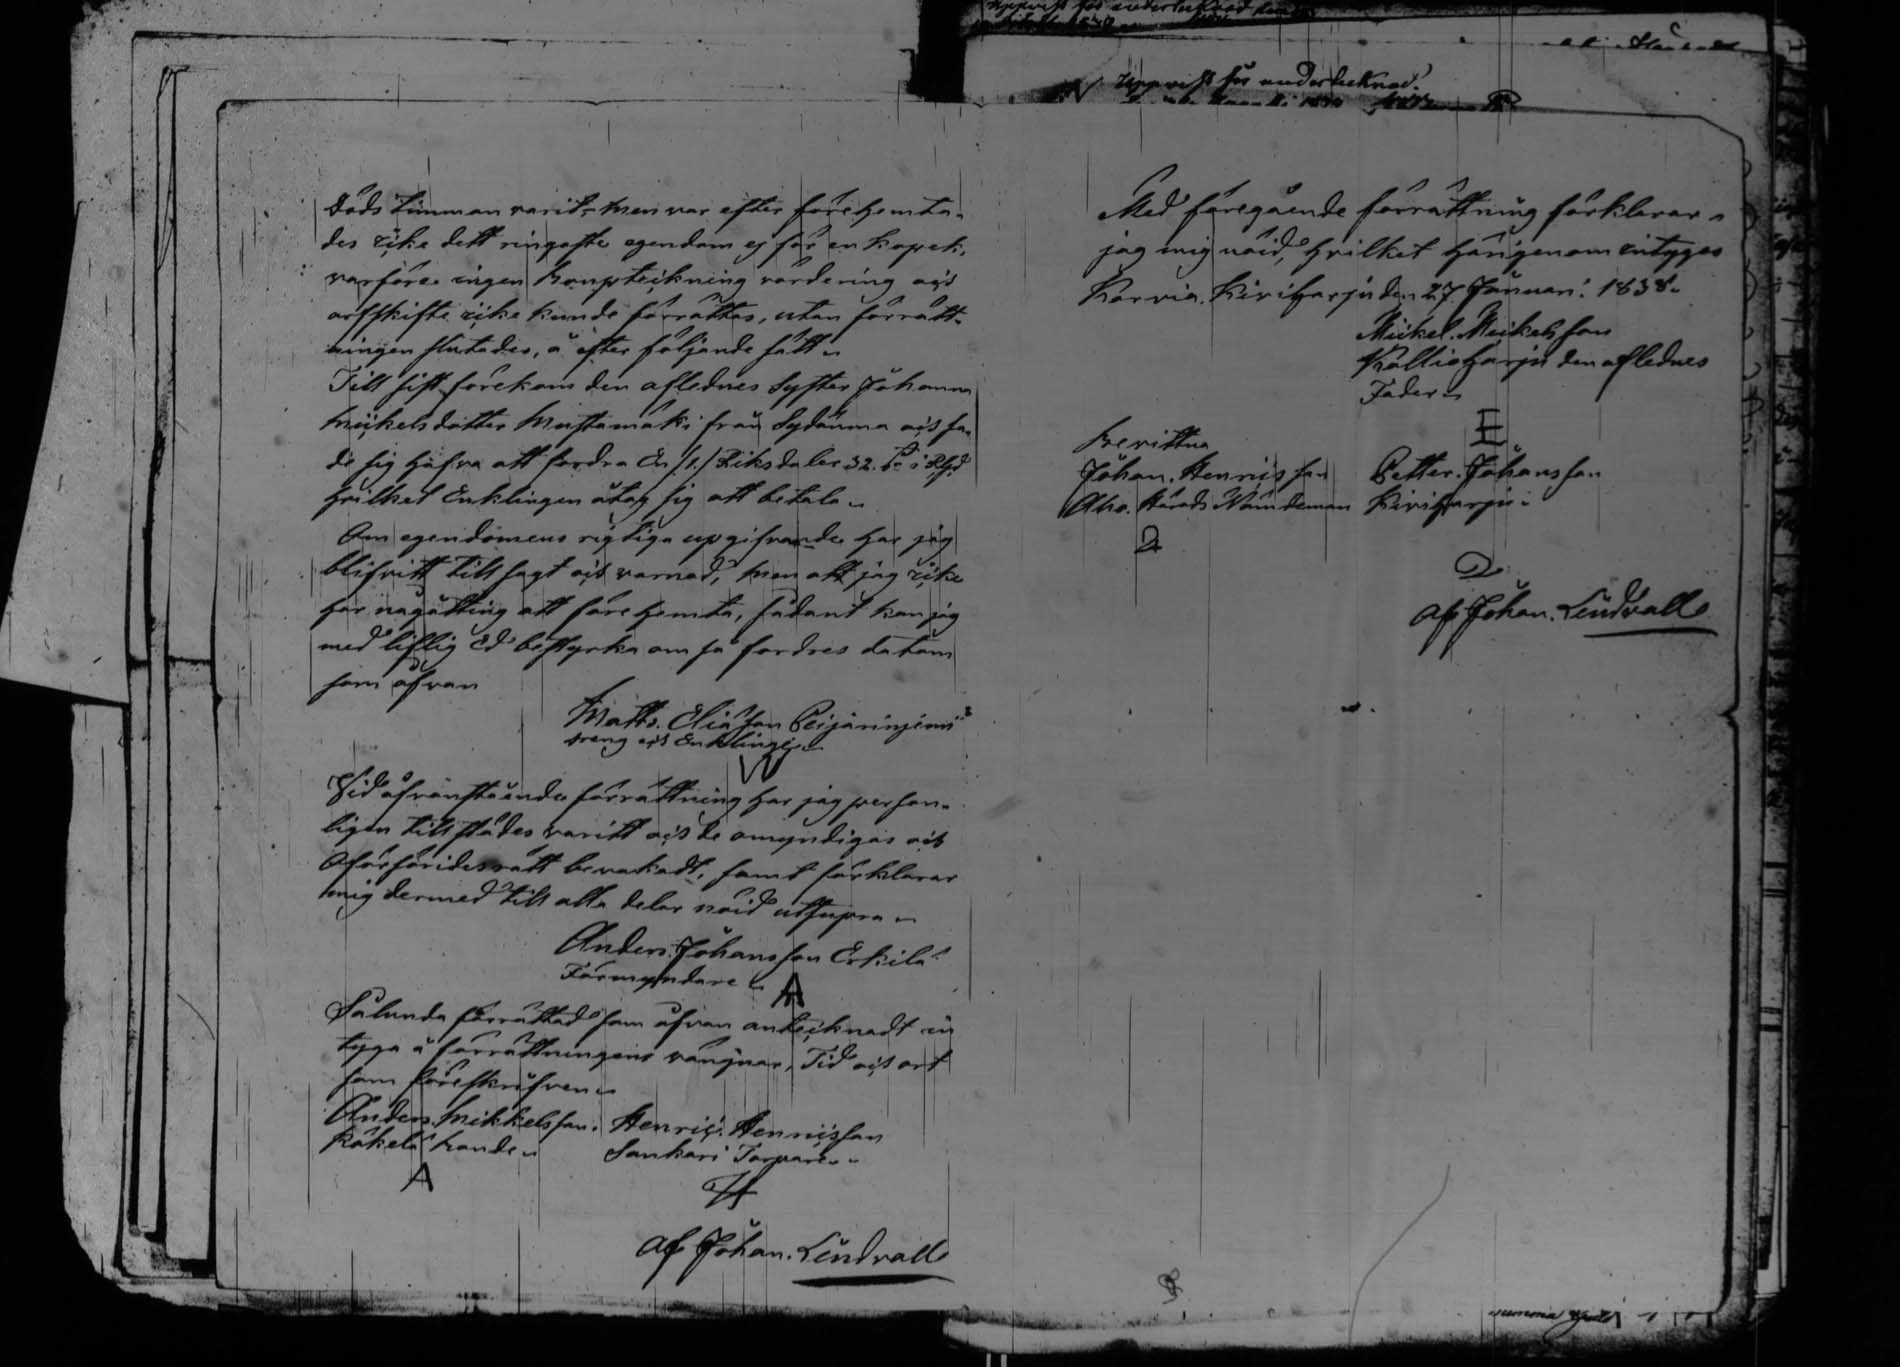 Uppvist för undertecknad
Döds timman varit, men var efter förehemta-
des icke dett ringaste egendom ej för en kopek,
varföre ingen bouptekning värdering och
arfskifte icke kunde förrättas, utan förrätt-
ningen slutades, å efter följande sätt.
Till sist förekom den aflednes Syster Johanna
Mickelsdotter Mustamäki från Sydänma och sa-
de sig hafva att fordra En /1./ Riksdaler 32.
hvilket Enklingen åtog sig att betala.
Om egendomens rigtiga upgifvande har jag
blifvitt till sagt och varnad, men att jag icke
har någåtting att förehemta, sådant kan jag
med liflig Ed bestyrka om så fordres datum
som ofvan
Matts. Eliasson Peijarinjemi
dreng och Enkling.
Vid ofvanstående förrättning har jag person-
ligen till städes varitt och de omyndigas och
rätt bevakadt, samt förklarar
mig dermed till alla delar nöid utsupra.
Anders. Johansson Erkilä
Förmyndare
A
Sålunda förrättad som ofvan anteiknadt in
tyga å förrättningens vängnar, Tid och ort
som föreskrifven.
Anders. Mikkelsson. Henric. Henricsson
Käkelä bonde. Sankari Torpare.
A
H
af Johan. Lindvall
Med föregående förrättning förklarar
jag mig nöid, hvilket härigenom intyges
Karvia. Kiriharju den 27. Januari. 1838.
Mickel. Mickelsson
Kallioharju den aflednes
Fader.
Bevittna
Johan. Henricsson Petter. Johansson
Aho. Härads Nämdeman Kiriharju.
af Johan. Lindvall